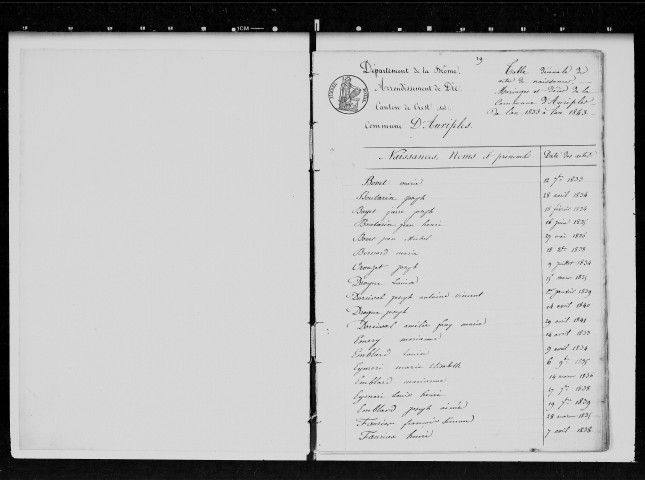 1CM
19
Département de la Drôme.
Arrondissement de Die
Canton de Crest sud
Commune D'Auriples.
Table décennale des
actes de naissances,
Mariages et décès de la
Commune D'Auriples
de l'an 1833 à l'an 1843.
Naissances, Noms et prénoms Date des actes
Bovet marie 12 7bre 1833
Boutarin joseph 28 avril 1834
Bayes joseph 15 février 1834
Boutarin jean henri 16 juin 1835
jean 29 mai 1836
Bernard marie 18 1838
Crouzet joseph 9 juillet 1834
Drogue Louise 15 mars 1835
Dorcival joseph antoine vincent 1839
Drogue joseph 14 avril 1840
Dorcival amélie marie 29 avril 1841
marianne 14 avril 1833
Emblard Louise 9 avril 1834
Eymeri marie Elisabeth 6 9bre 1835
Emblard marianne 14 mars 1836
Eymari Louis henri 27 7bre 1838
Emblard joseph aimé 19 7bre 1839
françois 28 mars 1835
henri 7 avril 1838